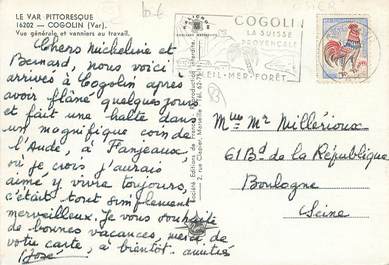 LE VAR PITTORESQUE
16202 - COGOLIN (Var).
Vue générale et vanniers au travail.
Chers Micheline et
Bernard, nous voici
arrivés à Cogolin après
avoir flâné quelques jours
et fait une halte dans
un magnifique coin de
l'Aude, à Fanjeaux
où je crois j'aurais
aimé y vivre toujours,
c'était tout simplement
merveilleux. Je vous souhaite
de bonnes vacances, merci de
votre carte, à bientôt. amitiés
José
COGOLIN
LA SUISSE
PROVENÇALE
EIL-MER-FORÊT
Mme Mr Millérioux
61 Bd de la République
Boulogne
Seine